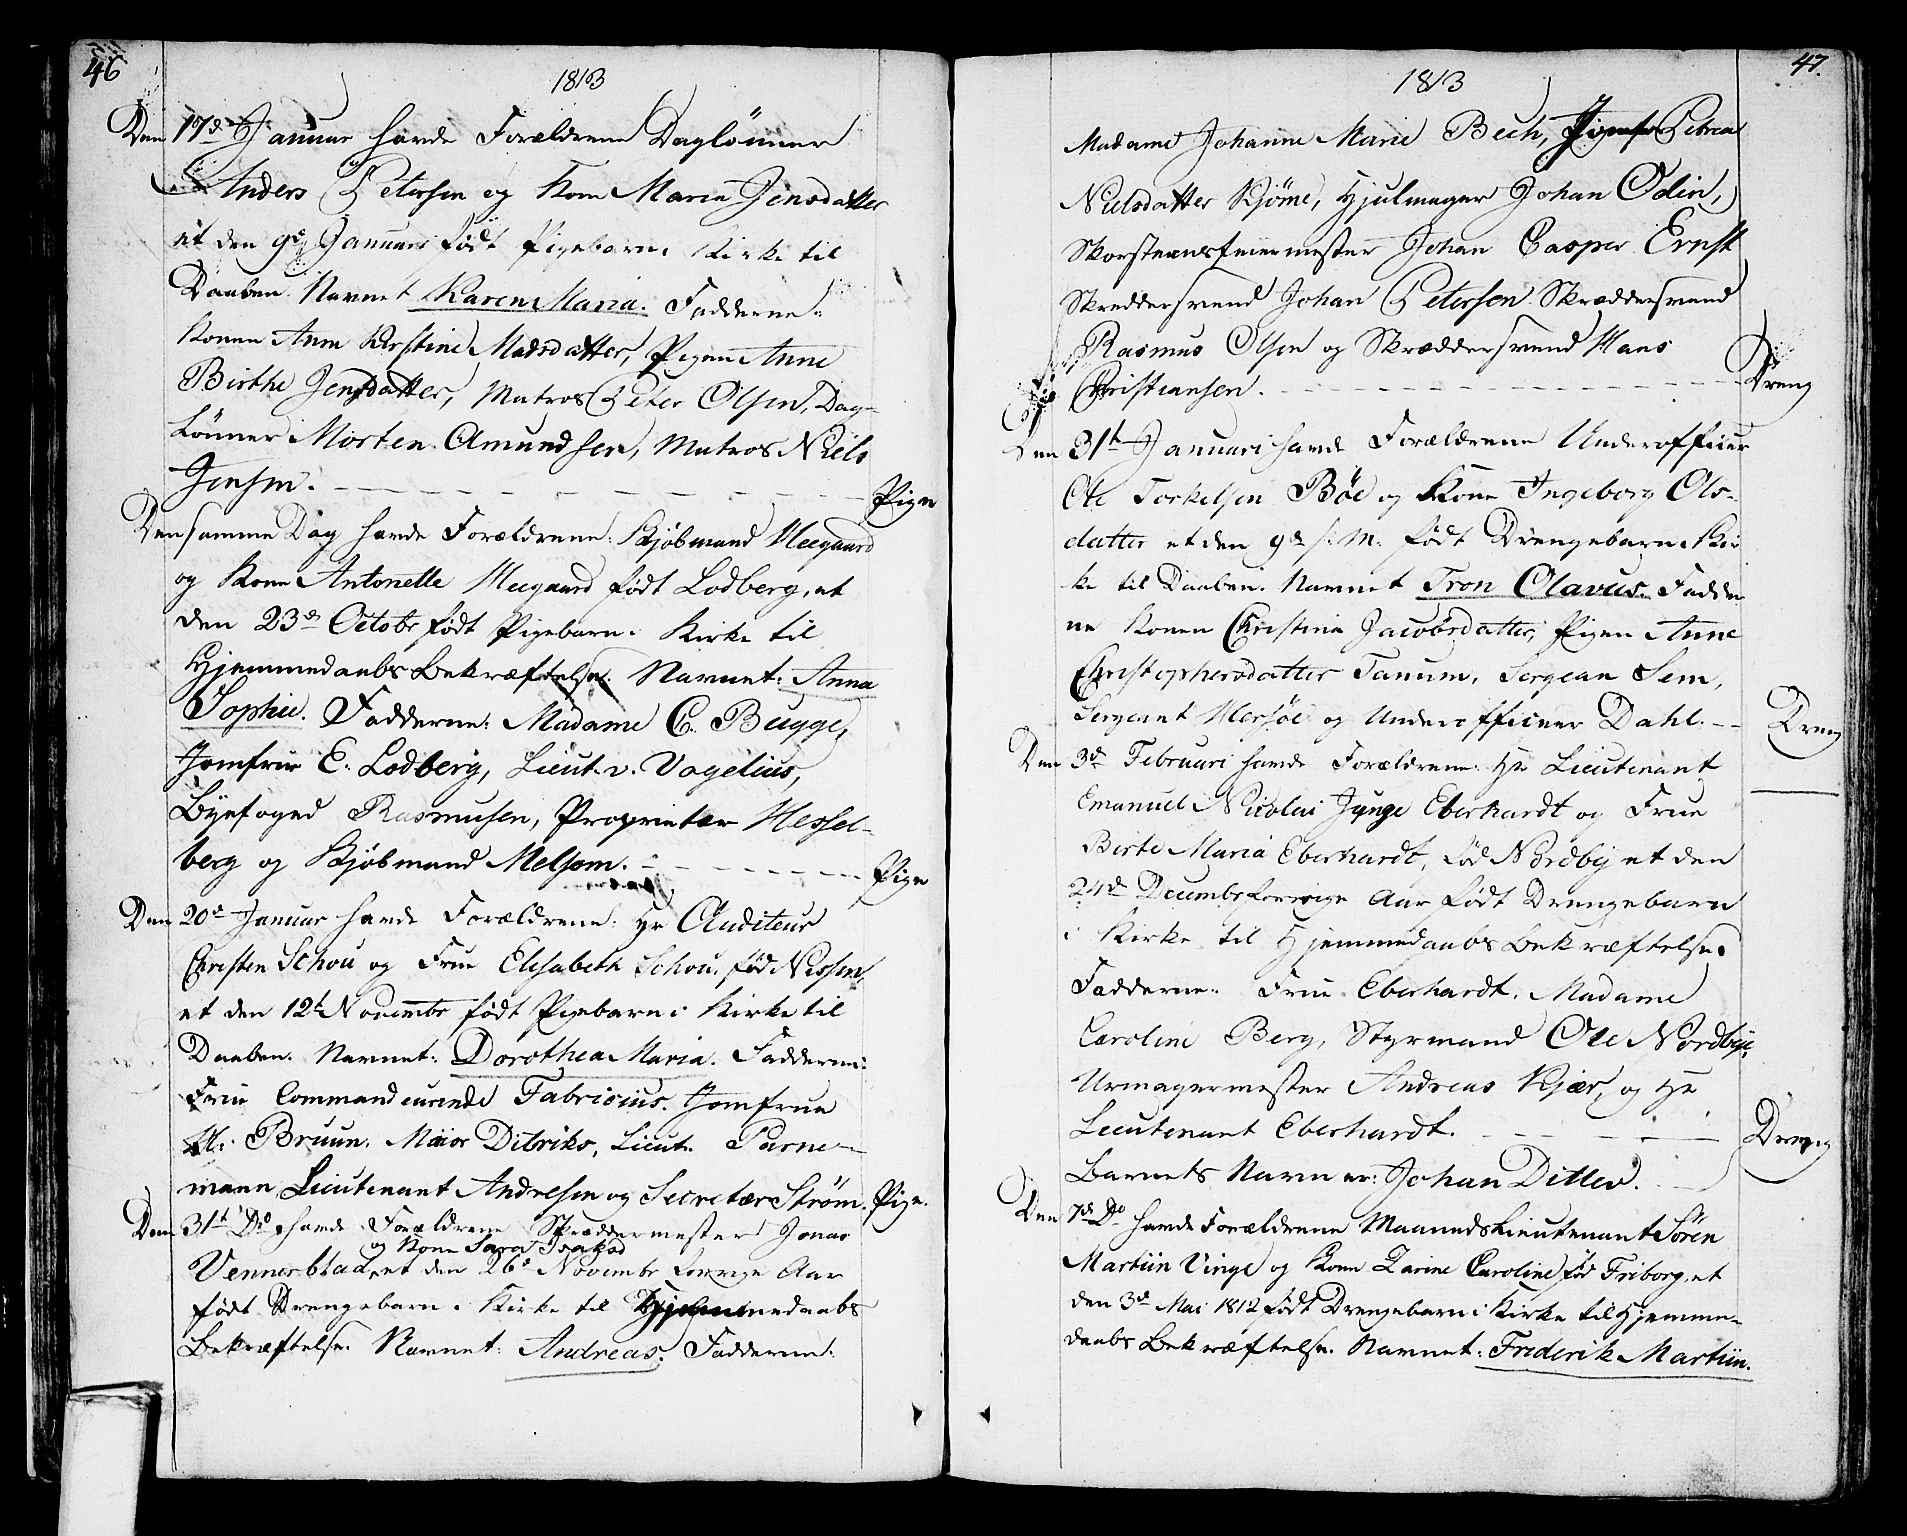 46
1813
Den 17de Januar havde Forældrene Daglönner
Anders Petersen og Kone Maria Jensdatter
et den 9de Januari födt Pigebarn i Kirke til
Daaben. Navnet Karen Maria. Fadderne:
Konen Anne Kirstine Madsdatter, Pigen Anne
Birthe Jensdatter, Matros Peter Olsen, Dag-
lönner Morten Amundsen, Matros Niels
Jensen. Pige
Den samme Dag havde Forældrene: Kjöbmand Meegaard
og Kone Antonette Meegaard födt Lodberg, et
den 23de Octobr födt Pigebarn i Kirke til
Hjemmedaabs Bekræftelse. Navnet: Anna
Sophie. Fadderne: Madame C. Bugge,
Jomfrue E. Lodberg, Lieut. v. Vogelius,
Byefoged Rasmusen, Proprietær Hessel-
berg og Kjöbmand Melsom. Pige
Den 20de Januar havde Forældrene: Hr Auditeur
Christen Schou og Frue Elisabeth Schou, föd Nissen,
et den 12te Novembr födt Pigebarn i Kirke til
Daaben. Navnet: Dorothea Maria. Fadderne:
Frue Commandeurinde Fabricius. Jomfrue
M. Bruun. Maior Ditriks, Lieut. Parne-
mann Lieutenant Andresen og Secretær Ström. Pige.
Den 31te Do havde Forældrene Skræddermester Jonas
og Kone Sara Isaksd
Vennerblad, et den 26de Novembr forrige Aar
födt Drengebarn i Kirke til Hjemmedaabs
Bekræftelse. Navnet: Andreas. Fadderne:
47.
1813
Madame Johanne Marie Bech, Jomfr Petrea
Nielsdatter Kjöme, Hjulmager Johan Odin,
Skorsteensfeiermester Johan Casper Ernst
Skreddersvend Johan Petersen Skræddersvend
Rasmus Olsen og Skræddersvend Hans
Christiansen. Dreng
Den 31te Januari havde Forældrene Underofficeer
Ole Torkelsen Böe og Kone Ingeborg Ols-
datter et den 9de s. M. födt Drengebarn i Kir
ke til Daaben. Navnet Tron Olavus. Fadder
ne Konen Christine Jacobsdatter, Pigen Anne
Christophersdatter Tanum, Sergean Sem,
Sergeant Mersöe og Underofficeer Dahl. Dreng
Den 3de Februari havde Forældrene: Hr Lieutenant
Emanuel Nicolai Junge Eberhardt og Frue
Birte Maria Eberhardt, föd Nordby et den
24de Decembr forrige Aar födt Drengebarn
i Kirke til Hjemmedaabs Bekræftelse.
Fadderne: Frue Eberhardt. Madame
Caroline Berg, Styrmand Ole Nordbye,
Urmagermester Andreas Kjær, og Hr
Lieutenant Eberhardt. Dreng
Barnets Navn er: Johan Ditlev.
Den 7de Do havde Forældrene Maaneds Lieutenant Sören
Martiin Vinge og Kone Zarine Caroline föd Friborg, et
den 3de Mai 1812 födt Drengebarn i Kirke til Hjemme-
daabs Bekræftelse. Navnet: Friderik Martiin.